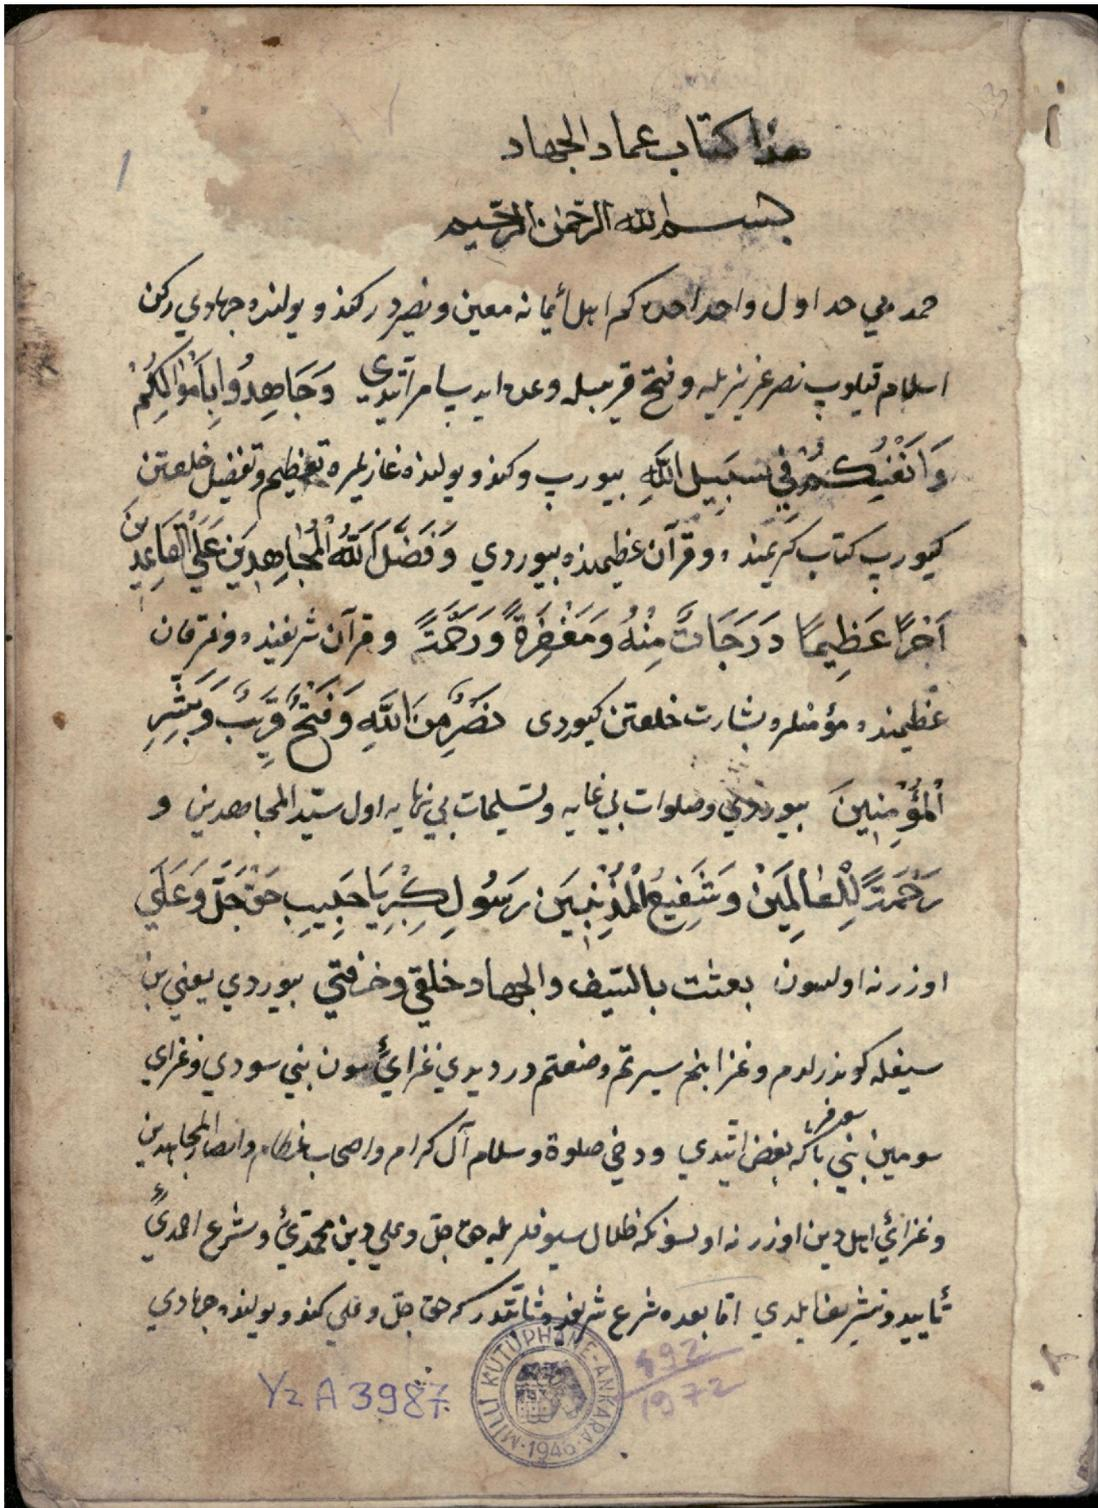 هذا كتاب عماد الجهاد
بسم الله الرحمن الرحيم
حمد بي حد اول واحد احده كم اهل ايمانه معين ونصيردر كندو يولنده جهادي ركن
اسلام قيلوب نصر عزيزيله وفتح قريبله وعده ايديب امر اتيدي وَجَاهِدُوا بِاَمْوَالِكُمْ
وَاَنْفُسِكُمْ فِي سَبِيلِ اللّٰهِ بيورب وكندو يولنده غازيلره تعظيم وتفضيل خلعتن
كيورب كتاب كريمنده وقرآن عظيمنده بيوردي وَفَضَّلَ اللّٰهُ الْمُجَاهِدِينَ عَلَي الْقَاعِدِينَ
اَجْرًا عَظِيمًا دَرَجَاتٍ مِنْهُ وَمَغْفِرَةً وَرَحْمَةً وقرآن شريفنده وفرقان
عظيمنده مؤمنلره بشارت خلعتن كيوردى نَصْرٌ مِنَ اللّٰهِ وَفَتْحٌ قَرِيبٌ وَبَشِّرِ
الْمُؤْمِنِينَ بيوردي وصلوات بي غايه وتسليمات بي نهايه اول سيّد المجاهدين و
رَحْمَةً لِلْعَالَمِينَ وَشَفِيعُ الْمُذْنِبِينَ رَسُولِ كِبْرِيَا حَبِيبِ حَقْ جَلَّ وَعَلَي
اوزرنه اولسون بعثت بالسّيف والجهاد خلقي وحرفتي بيوردي يعني بن
سيفله كوندرلدم وغزا بنم سيرتم وصنعتم در ديدي غزايي سون بني سودي وغزاي
سومين بني باكه بغض اتيدي ودخي صلوة وسلام آل كرام واصحاب عظام وانصار المجاهدين
وغزائ اهل دين اوزرنه اولسونكه ظلال سيوفلريله حق جلّ وعلي دين محمّديّ وشرع احمديّ
تأييد وتشريف ايلدي امّا بعده شرع شريفده ثابتدركه حق جلّ وعلي كندو يولنده جهادي
Yz A 3987
MİLLİ KÜTÜPHANE-ANKARA
1946
892
1972